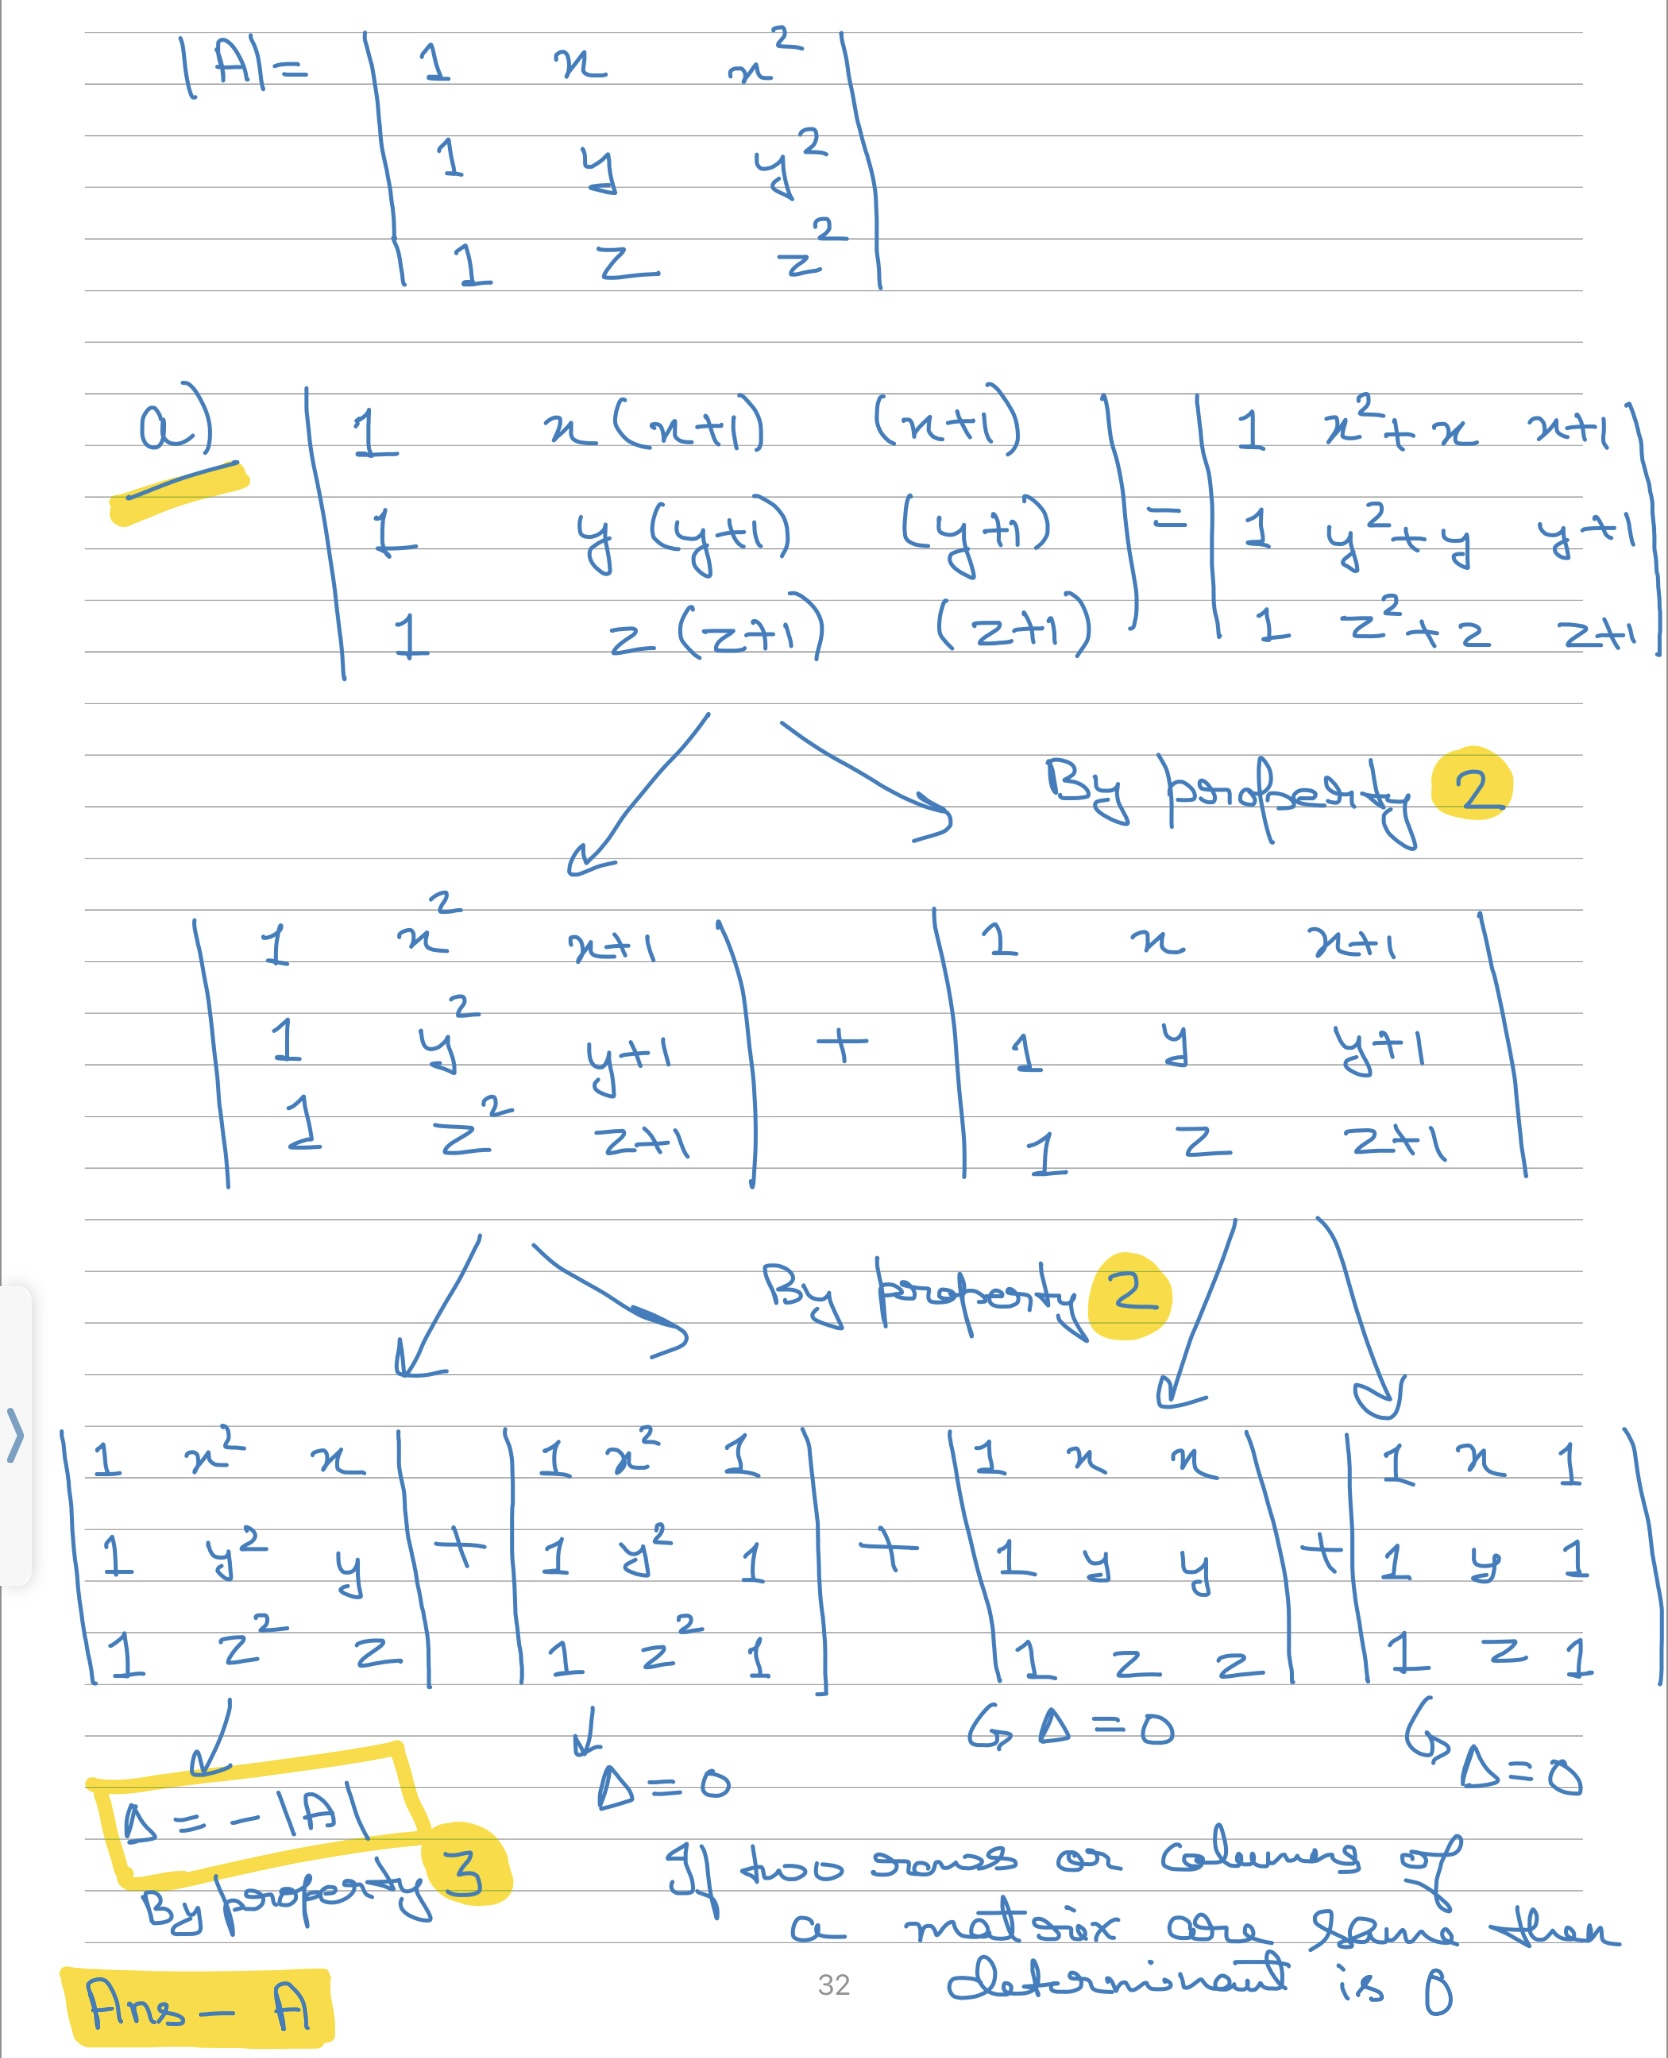 |A| = | 1 x x² |
| 1 y y² |
| 1 z z² |
a) | 1 x(x+1) (x+1) | = | 1 x²+x x+1 |
| 1 y(y+1) (y+1) | | 1 y²+y y+1 |
| 1 z(z+1) (z+1) | | 1 z²+z z+1 |
By property 2
| 1 x² x+1 | + | 1 x x+1 |
| 1 y² y+1 | | 1 y y+1 |
| 1 z² z+1 | | 1 z z+1 |
By property 2
| 1 x² x | + | 1 x² 1 | + | 1 x x | + | 1 x 1 |
| 1 y² y | | 1 y² 1 | | 1 y y | | 1 y 1 |
| 1 z² z | | 1 z² 1 | | 1 z z | | 1 z 1 |
Δ = -|A|
By property 3
Δ = 0
Δ = 0
Δ = 0
If two rows or columns of
a matrix are same then
determinant is 0
Ans - A
32